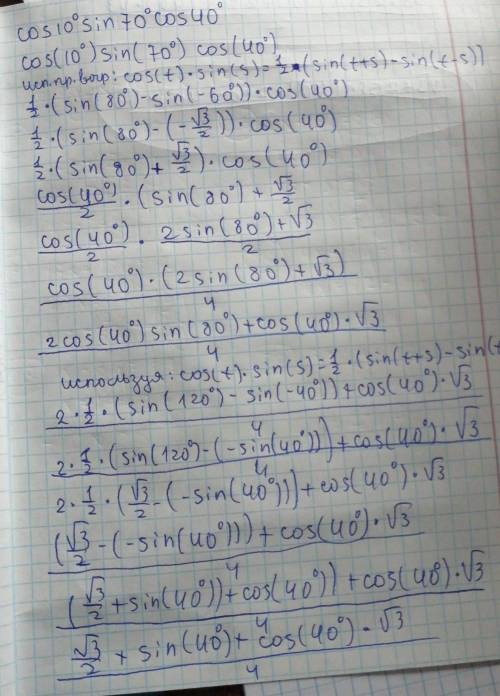 cos10°sin70°cos40°
cos(10°)sin(70°) cos(40°)
исп.пр.выр: cos(t)·sin(s)=1/2·(sin(t+s)-sin(t-s))
1/2·(sin(80°)-sin(-60°))·cos(40°)
1/2·(sin(80°)-(-√3/2))·cos(40°)
1/2·(sin(80°)+√3/2)·cos(40°)
cos(40°)/2·(sin(80°)+√3/2
cos(40°)/2·(2sin(80°)+√3)/2
cos(40°)·(2sin(80°)+√3)/4
2cos(40°)sin(80°)+cos(40°)·√3/4
используя: cos(t)·sin(s)=1/2·(sin(t+s)-sin(t
2·1/2·(sin(120°)-sin(-40°))+cos(40°)·√3/4
2·1/2·(sin(120°)-(-sin(40°)))+cos(40°)·√3/4
2·1/2·(√3/2-(-sin(40°))]+cos(40°)·√3
(√3/2-(-sin(40°)))+cos(40°)·√3/4
(√3/2+sin(40°))+cos(40°))+cos(40°)·√3/4
√3/2+sin(40°)+cos(40°)·√3/4